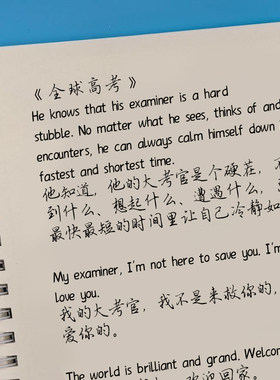 《全球高考》
He knows that his examiner is a hard
stubble. No matter what he sees, thinks of and
encounters, he can always calm himself down
fastest and shortest time.
他知道，他的大考官是个硬茬，
到什么、想起什么、遭遇什么，
最快最短的时间里让自己冷静如
My examiner, I'm not here to save you. I'm
love you.
我的大考官，我不是来救你的，
爱你的。
The world is brilliant and grand. Welcom
欢迎回家。